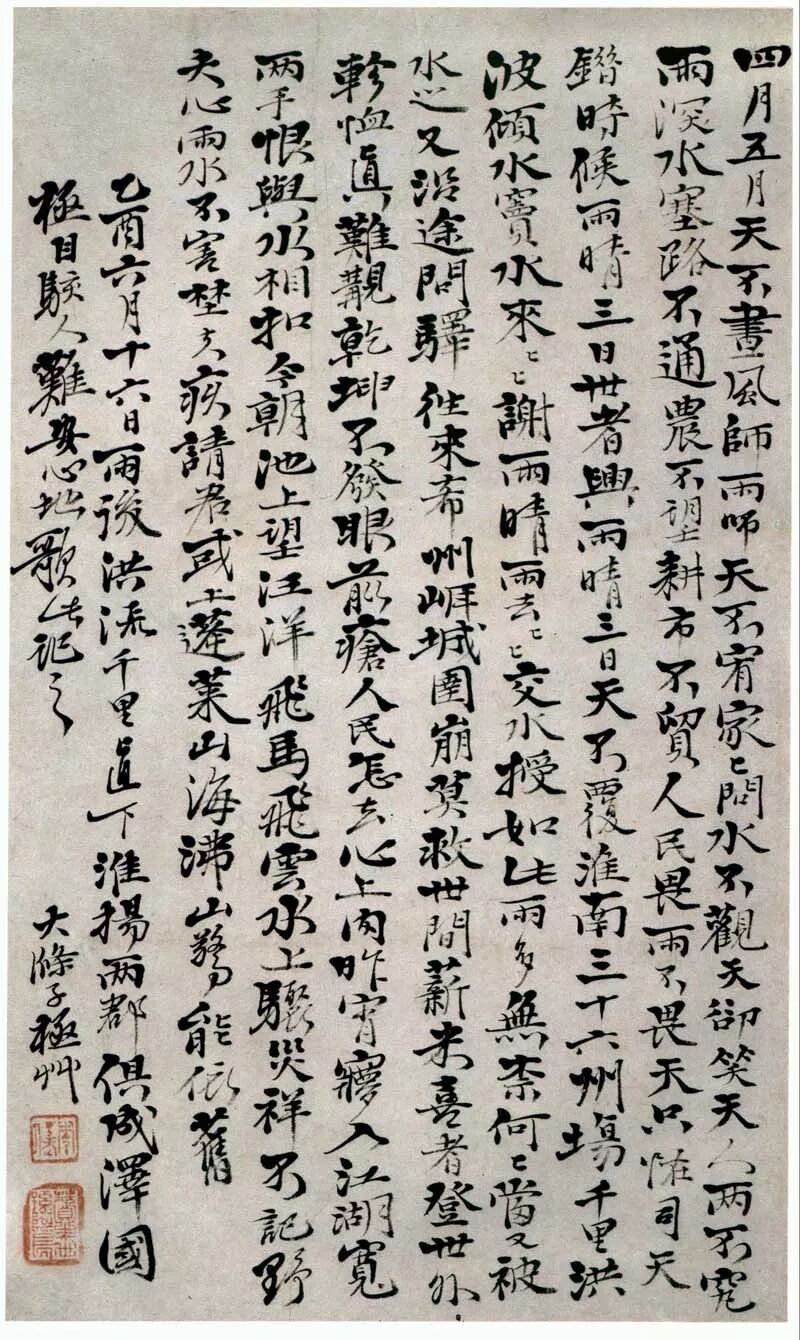 四月五月天不晝風師雨師天不宥家〻問水不觀天卻笑天人兩不究
雨深水塞路不通農不望耕市不貿人民畏雨不畏天只怪司天
錯時候雨晴三日世者興雨晴三日天不覆淮南三十六州塲千里洪
波傾水竇水來〻謝雨晴雨去〻交水授如此雨多無柰何〻當又被
水之又沿途問驛徃來希州崕城圍崩莫救世間薪米喜者登世外
軫恤真難覯乾坤不發眼前瘡人民怎去心上肉昨宵寢入江湖寬
兩手恨與水相扣今朝池上望汪洋飛馬飛雲水上驟災祥不記野
夫心雨水不害埜夫疾請君或上蓬萊山海沸山驚能依舊
乙酉六月十六日雨後洪流千里直下淮揚兩郡俱成澤國
極目駭人難安心地歌此記之
大滌子極艸